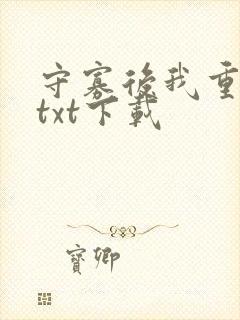 守寡後我重
txt下載
寶卿